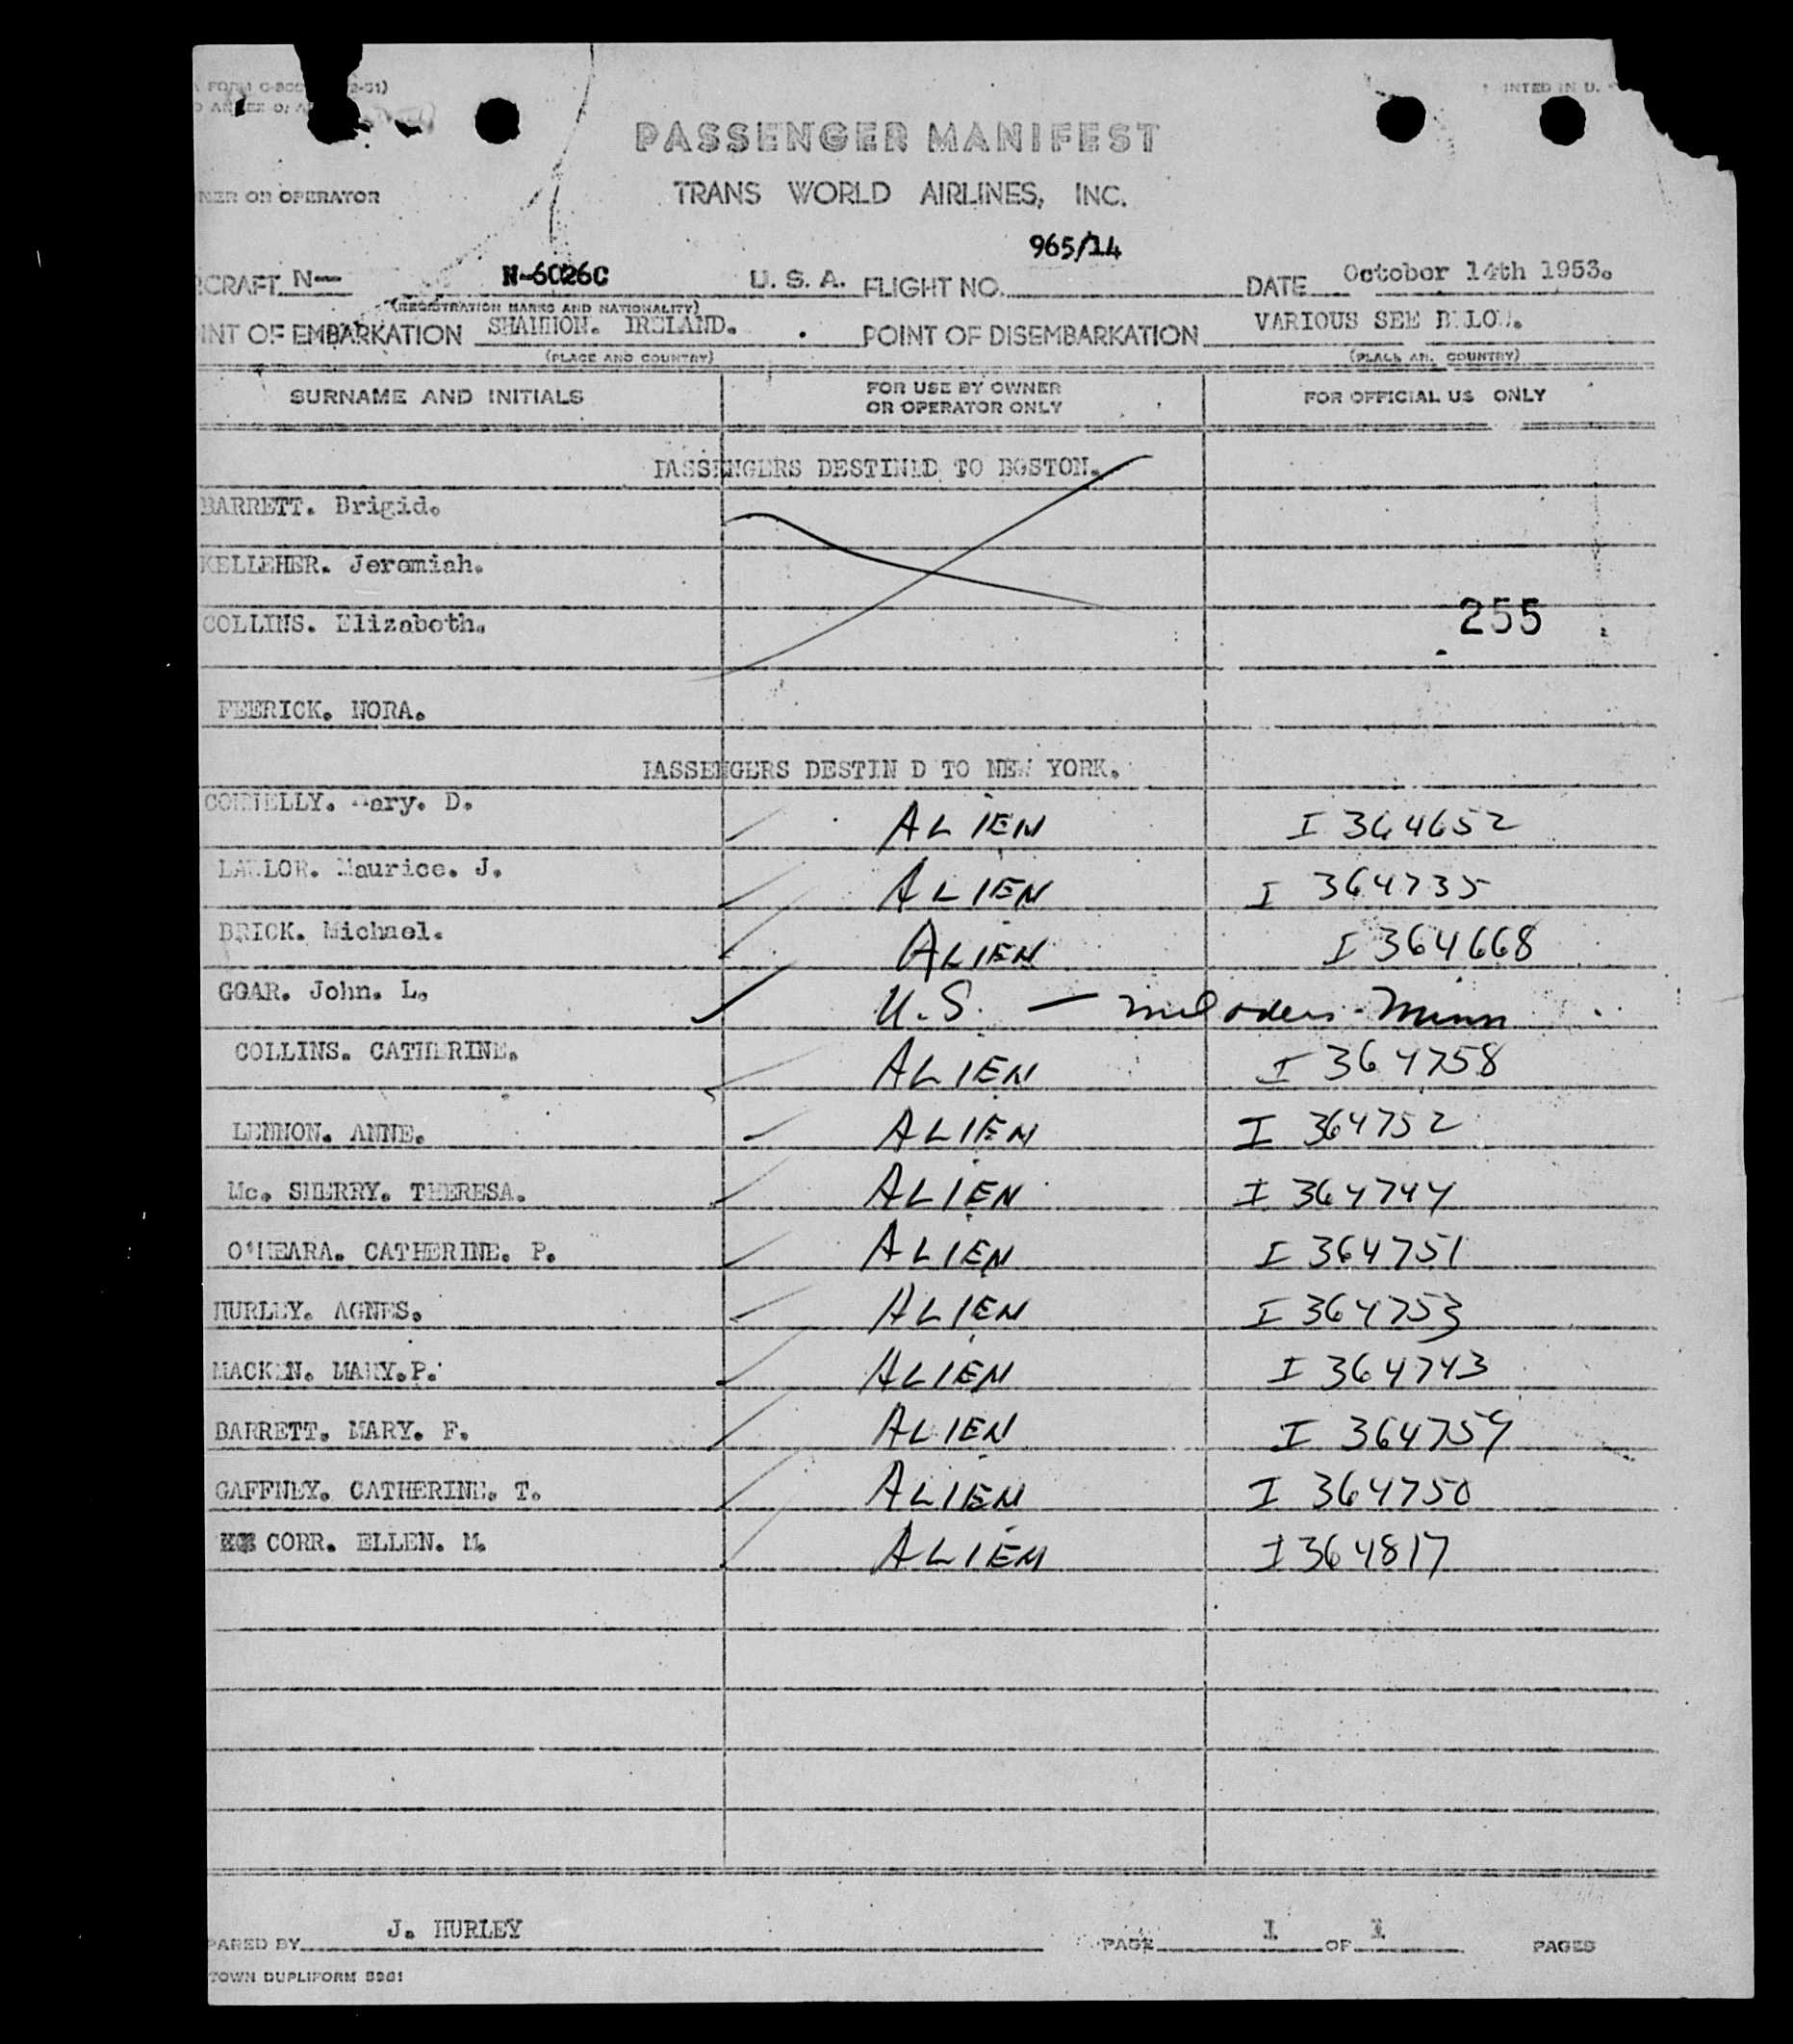 FORM
PASSENGER MANIFEST
NER OR OPERATOR
TRANS WORLD AIRLINES, INC.
965/14
RCRAFT N— N-6026C U. S. A. FLIGHT NO. DATE October 14th 1953.
(REGISTRATION MARKS AND NATIONALITY)
INT OF EMBARKATION SHANNON. IRELAND. POINT OF DISEMBARKATION VARIOUS SEE B LO .
(PLACE AND COUNTRY) (PLACE AN. COUNTRY)
SURNAME AND INITIALS FOR USE BY OWNER OR OPERATOR ONLY FOR OFFICIAL US ONLY
PASSENGERS DESTINED TO BOSTON.
BARRETT. Brigid.
KELLEHER. Jeremiah.
COLLINS. Elizabeth.
255
FEERICK. NORA.
PASSENGERS DESTIN D TO NEW YORK.
CONNELLY. Mary. D. ALIEN I 364652
LAWLOR. Maurice. J. ALIEN I 364735
BRICK. Michael. ALIEN I 364668
GOAR. John. L. U.S. — Minn
COLLINS. CATHERINE. ALIEN I 364758
LENNON. ANNE. ALIEN I 364752
Mc. SHERRY. THERESA. ALIEN I 364744
O'MEARA. CATHERINE. P. ALIEN I 364751
HURLEY. AGNES. ALIEN I 364753
MACK N. MARY.P. ALIEN I 364743
BARRETT. MARY. F. ALIEN I 364759
GAFFNEY. CATHERINE. T. ALIEN I 364750
CORR. ELLEN. M. ALIEN I 364817
PARED BY J. HURLEY PAGE 1 OF 1 PAGES
TOWN DUPLIFORM